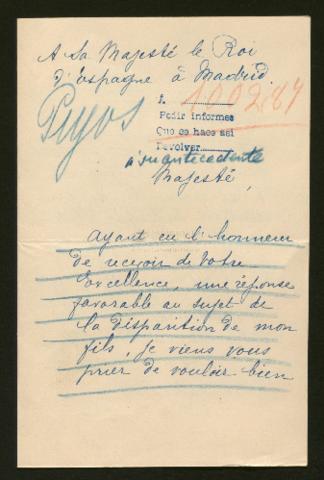 A Sa Majesté le Roi
d'espagne à Madrid.
Puyos
100284
Pedir informes
Que se hace así
Devolver
a su antecedente
Majesté,
Ayant eu l'honneur
de recevoir de Votre
Excellence, une réponse
favorable au sujet de
la disparition de mon
fils, je viens vous
prier de vouloir bien